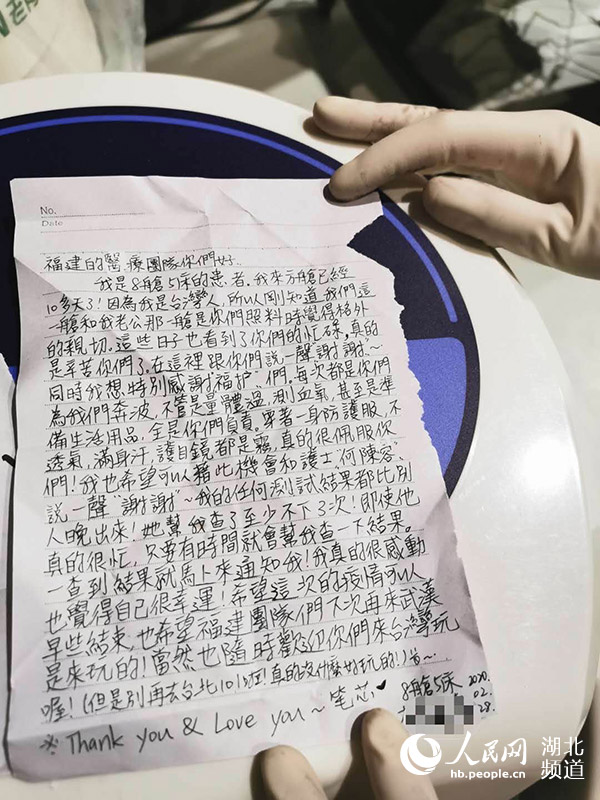 No.
Date
福建的醫療團隊你們好
我是8艙5床的患者.我來方艙已經
10多天了!因為我是台灣人.所以剛知道我們這
一艙和我老公那一艙是你們照料時覺得格外
的親切.這些日子也看到了你們的忙碌,真的
是辛苦你們了.在這裡跟你們說一聲"謝謝"~
同時我想特別感謝福护、們.每次都是你們
為我們奔波,不管是量體溫,測血氧,甚至是準
備生活用品.全是你們負責.穿著一身防護服.不
透氣,滿身汗,護目鏡都是霧,真的很佩服你
們!我也希望可以藉此機會和護士,何陳容.
說一聲"謝謝"~我的任何測試結果都比別
人晚出來!她幫我查了至少不下3次!即使他
真的很忙,只要有時間就會幫我查一下結果。
一查到結果就馬上來通知我!我真的很感動
也覺得自己很幸運!希望這次的疫情可以
早些結束.也希望福建團隊們下次再來武漢
是來玩的!當然也隨時歡迎你們來台灣玩
喔!(但是別再去台北101玩!真的沒什麼好玩的!)
8艙5床 2020.
02.
28.
※Thank you & Love you~ 笔芯♥
人民网 湖北
频道
hb.people.cn